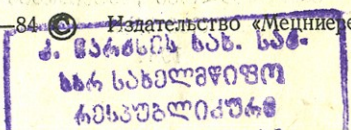 —84 © Издательство «Мецниере
კ. მარქსის სახ. საქ.
სსრ სახელმწიფო
რესპუბლიკურმ